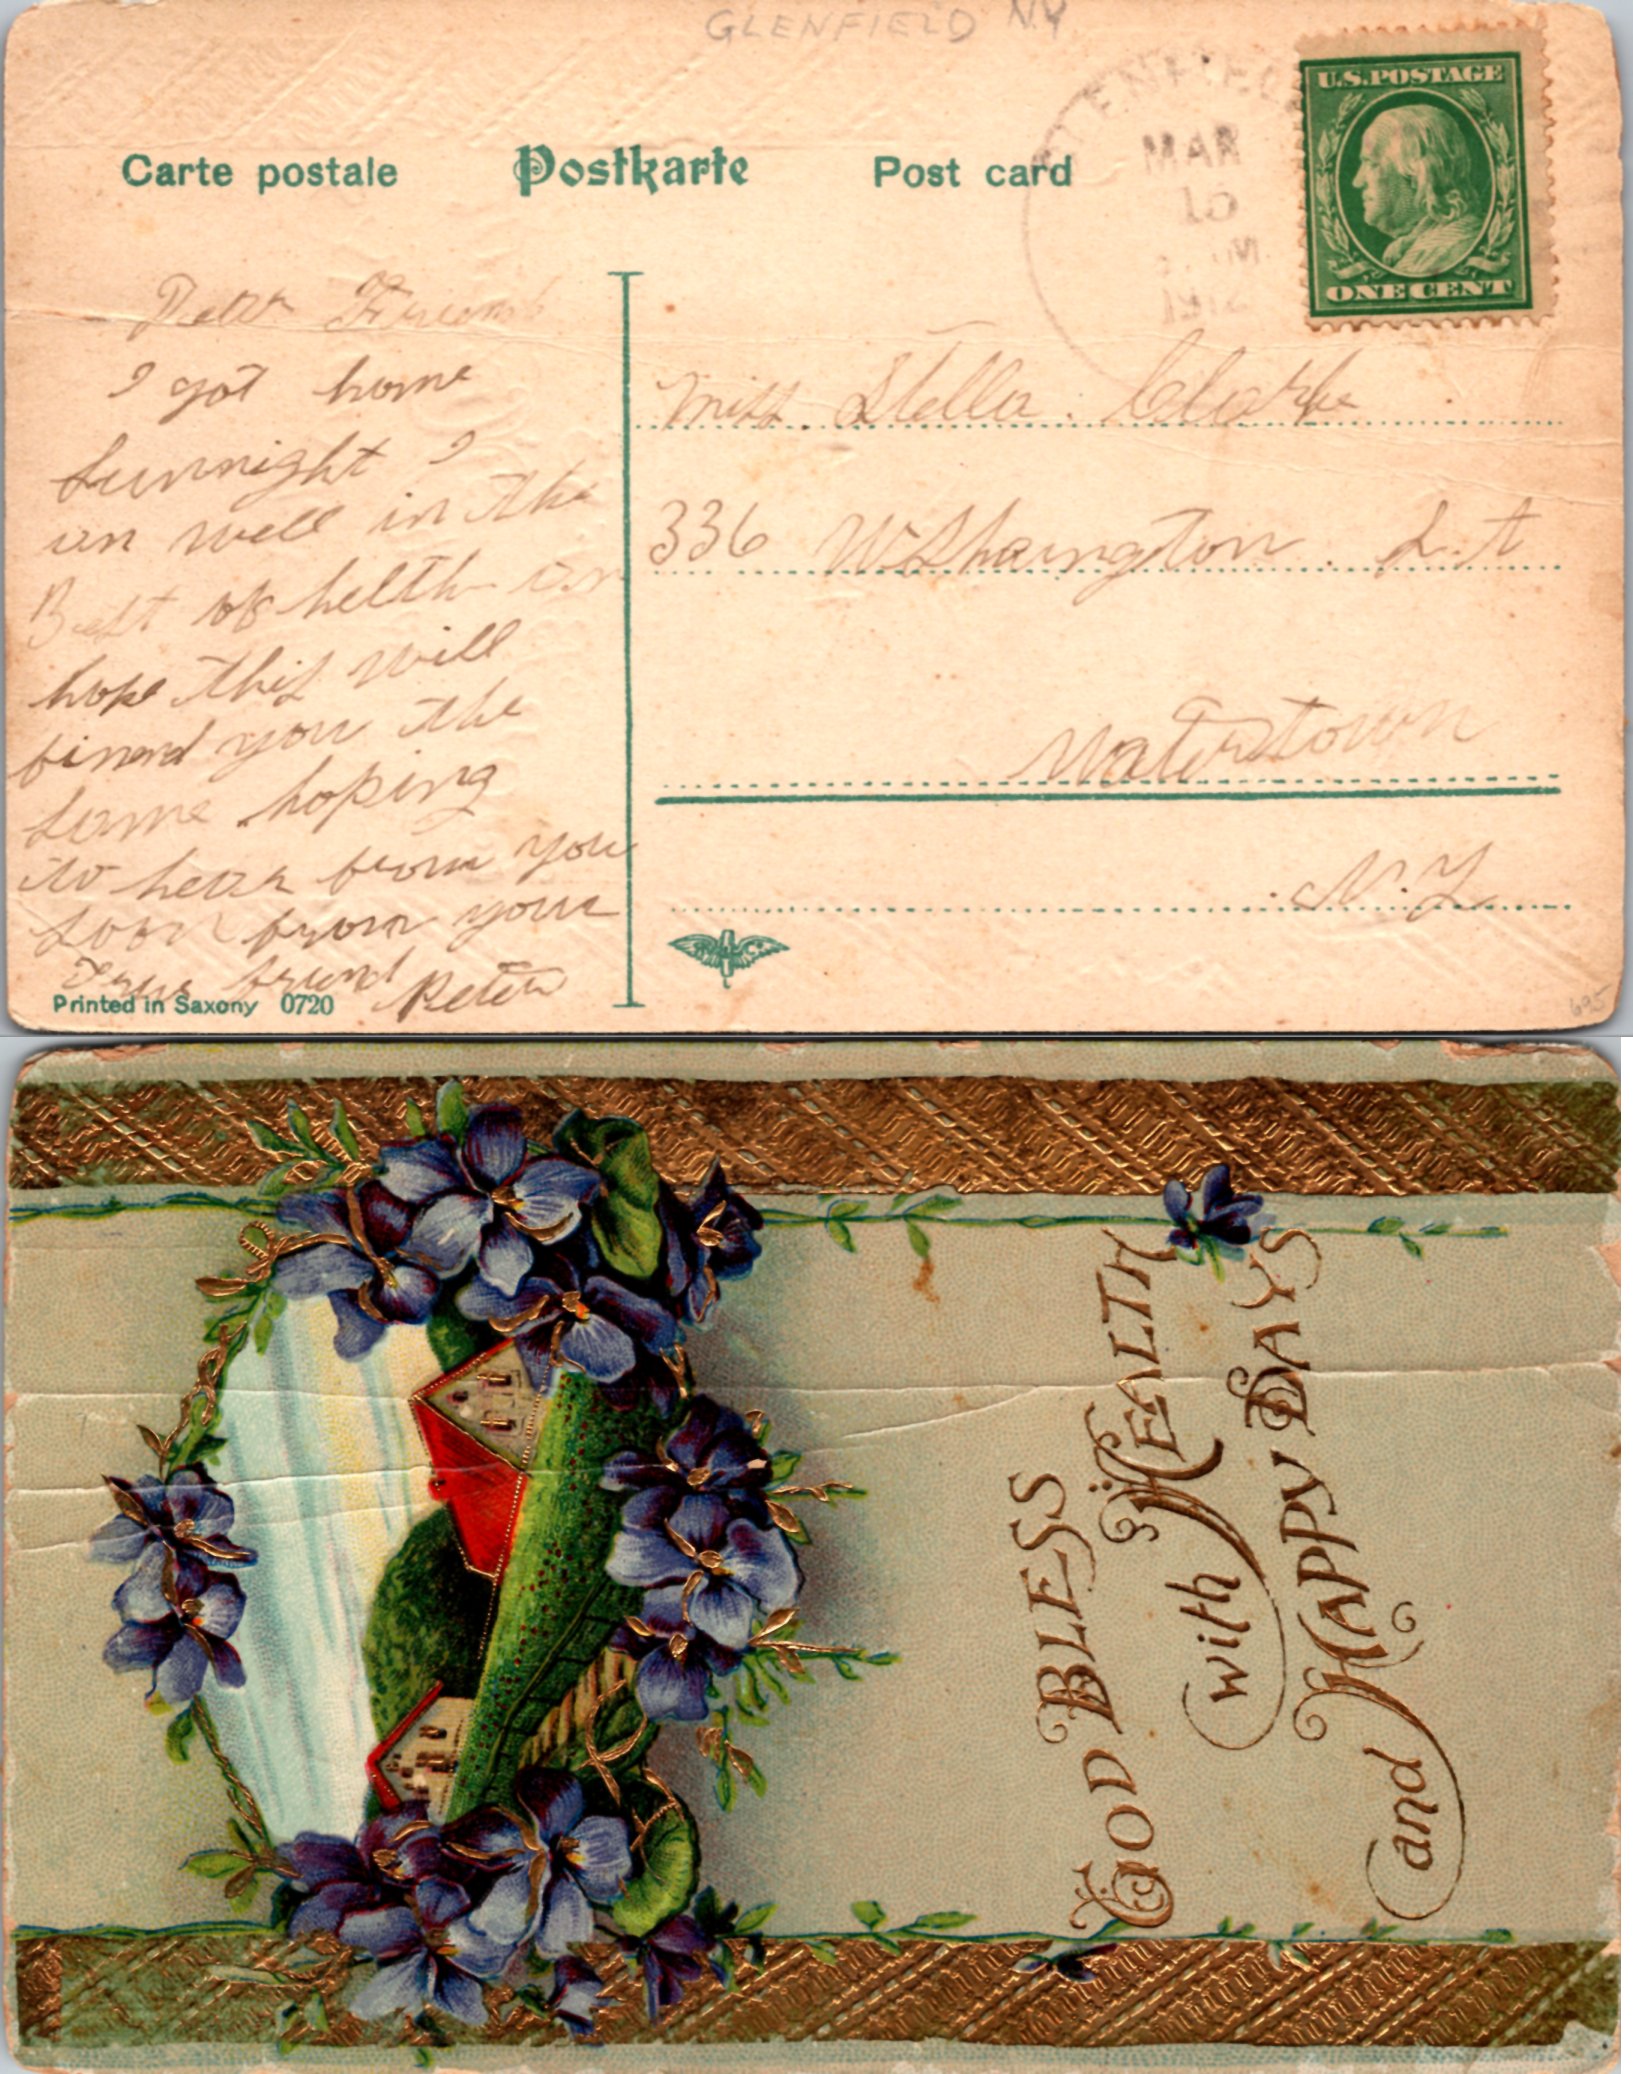 GLENFIELD N.Y
GLENFIELD
MAR
1912
U.S. POSTAGE
ONE CENT
Carte postale Postkarte Post card
Dear Freind
I got home
sunnight I
un well in the
Best of helth un
hope this will
finend you the
same hoping
to hear from you
soon from your
True frund Peter
Miss. Stella. Clarke
336 WShaington. S.t
Watertown
N.Y.
Printed in Saxony 0720
695
GOD BLESS
with HEALTH
and HAPPY DAYS